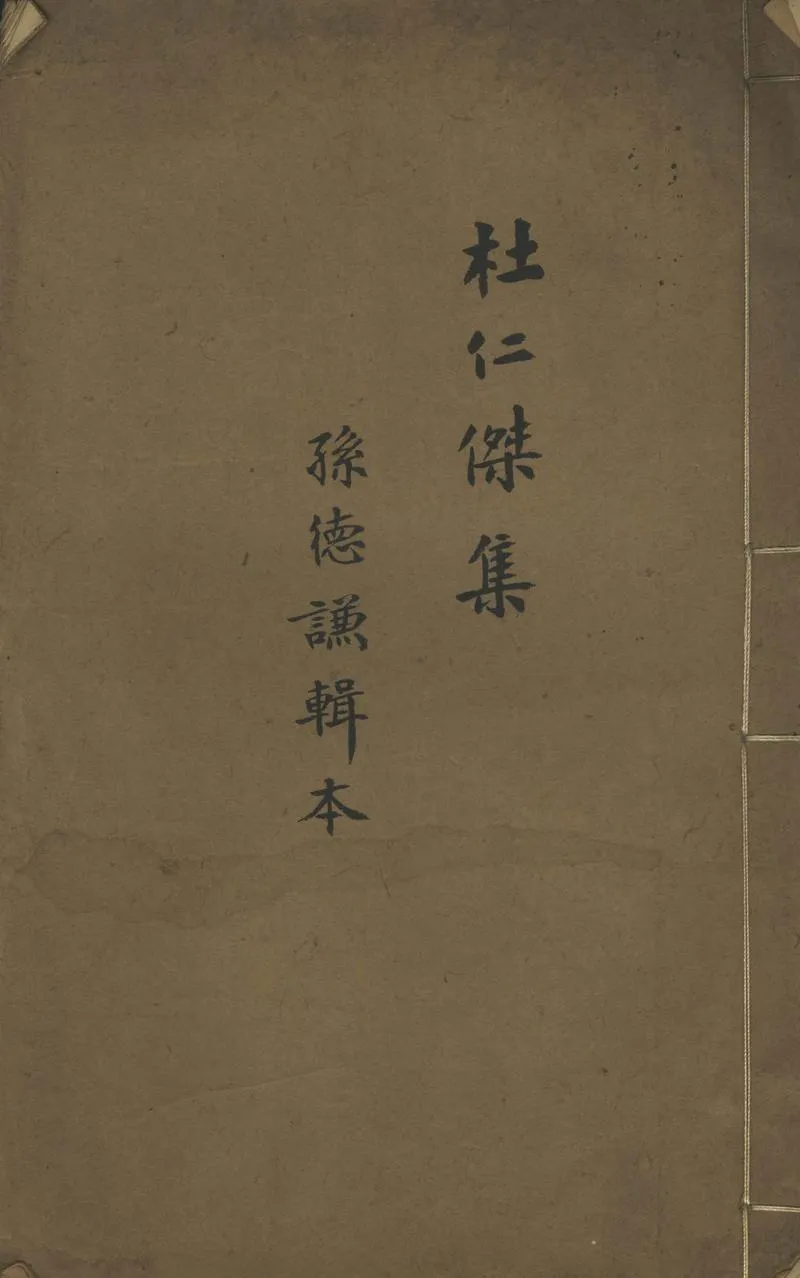 杜仁傑集
孫德謙輯本